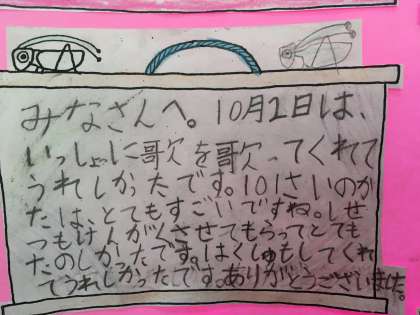 みなさんへ。10月2日は、
いっしょに歌を歌ってくれて
うれしかったです。101さいのか
たは、とてもすごいですね。しせ
つもけんがくさせてもらってとても
たのしかったです。はくしゅもしてくれ
てうれしかったです。ありがとうございました。